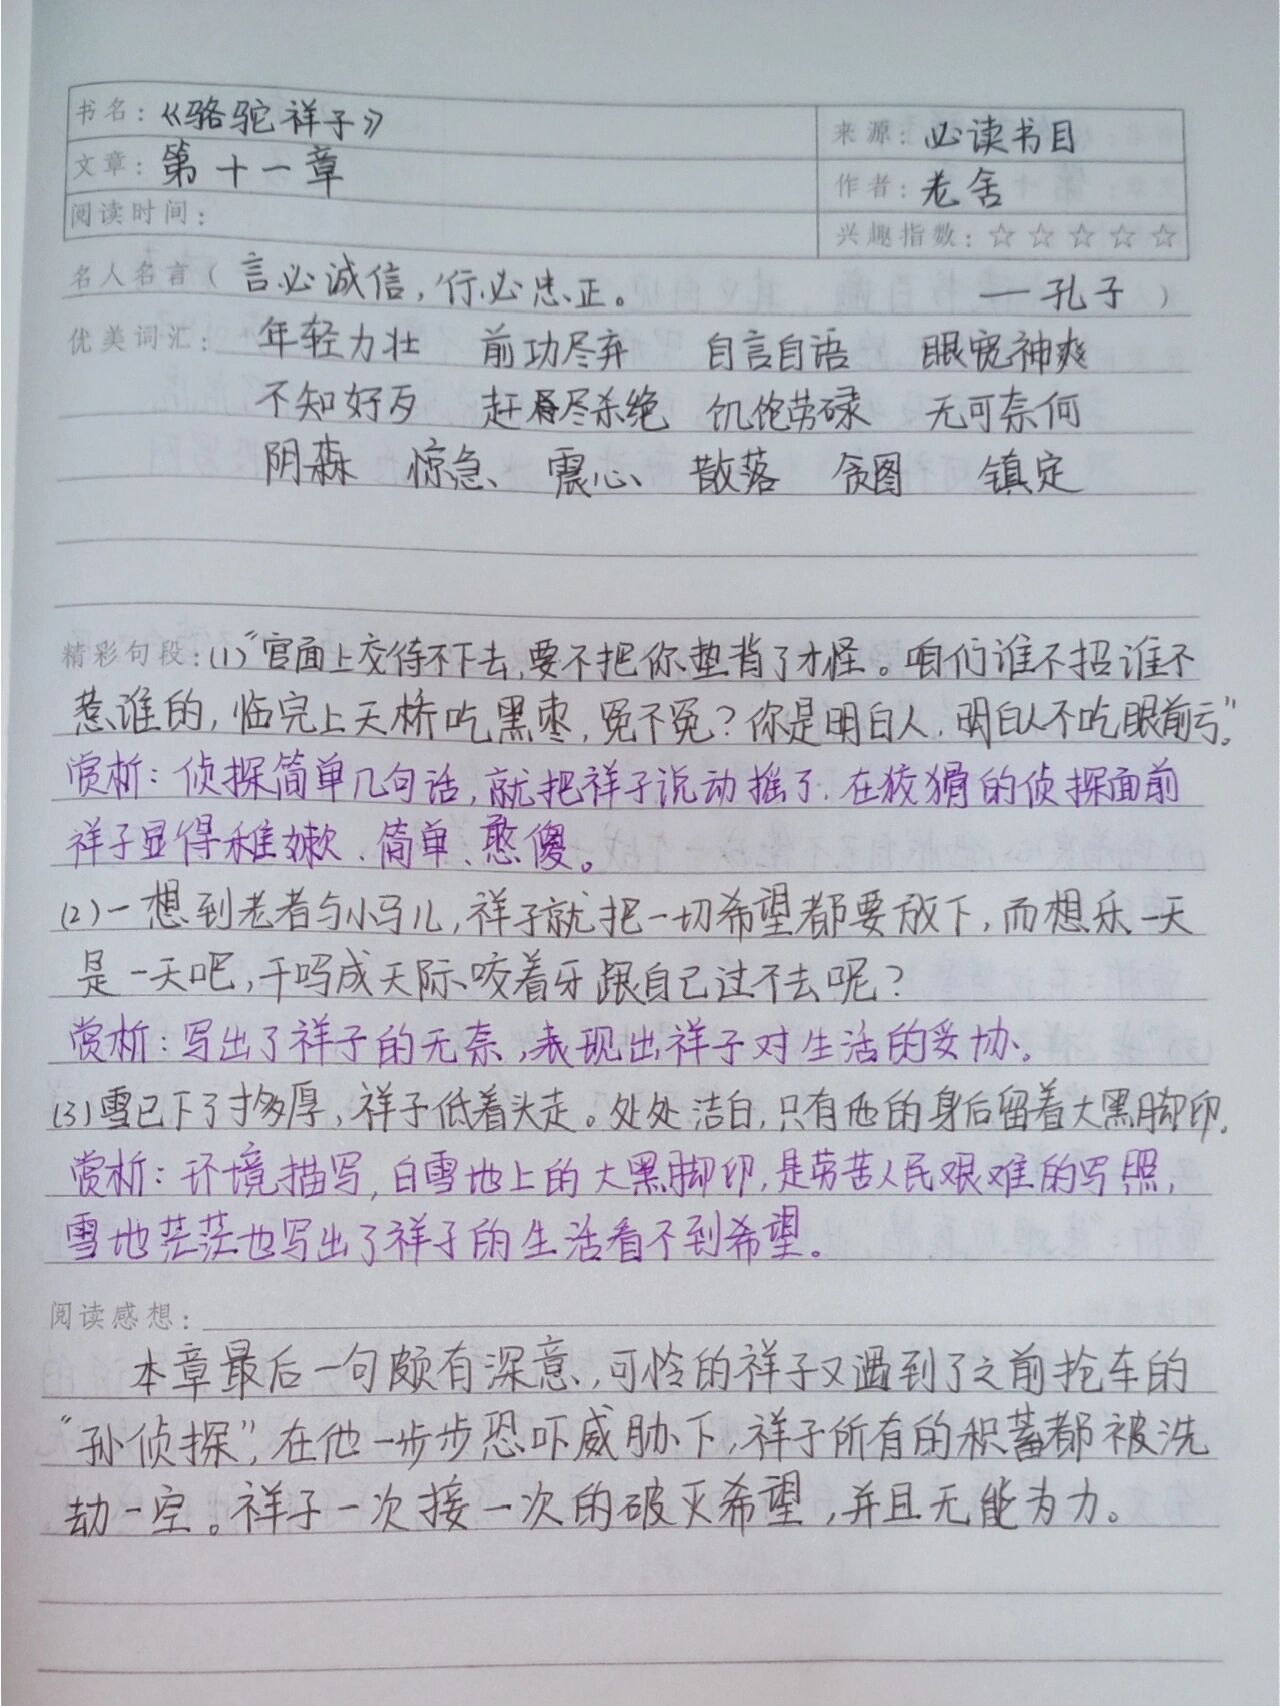 书名：《骆驼祥子》
来源：必读书目
文章：第十一章
作者：老舍
阅读时间：
兴趣指数：☆☆☆☆☆
名人名言（言必诚信，行必忠正。 — 孔子）
优美词汇：年轻力壮 前功尽弃 自言自语 眼宽神爽
不知好歹 赶尽杀绝 饥饱劳碌 无可奈何
阴森 惊急 震心 散落 贪图 镇定
精彩句段：(1)“官面上交待不下去，要不把你垫背了才怪。咱们谁不招谁不
惹谁的，临完上天桥吃黑枣，冤不冤？你是明白人，明白人不吃眼前亏。”
赏析：侦探简单几句话，就把祥子说动摇了，在狡猾的侦探面前
祥子显得稚嫩、简单、憨傻。
(2)一想到老者与小马儿，祥子就把一切希望都要放下，而想乐一天
是一天吧，干吗成天际咬着牙跟自己过不去呢？
赏析：写出了祥子的无奈，表现出祥子对生活的妥协。
(3)雪已下了寸多厚，祥子低着头走。处处洁白，只有他的身后留着大黑脚印。
赏析：环境描写，白雪地上的大黑脚印，是劳苦人民艰难的写照，
雪地茫茫也写出了祥子的生活看不到希望。
阅读感想：
本章最后一句颇有深意，可怜的祥子又遇到了之前抢车的
“孙侦探”，在他一步步恐吓威胁下，祥子所有的积蓄都被洗
劫一空。祥子一次接一次的破灭希望，并且无能为力。